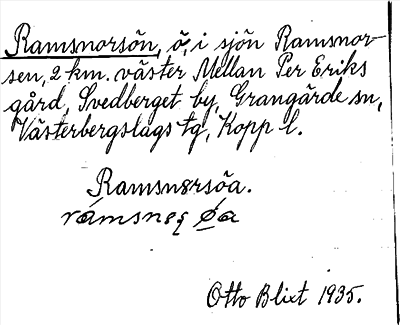 Ramsnorsön, ö, i sjön Ramsnor-
sen, 2 km. väster Mellan Per Eriks
gård, Svedberget by, Grangärde sn,
Västerbergslags tg, Kopp l.
Ramsnørsöa.
Otto Blixt 1935.